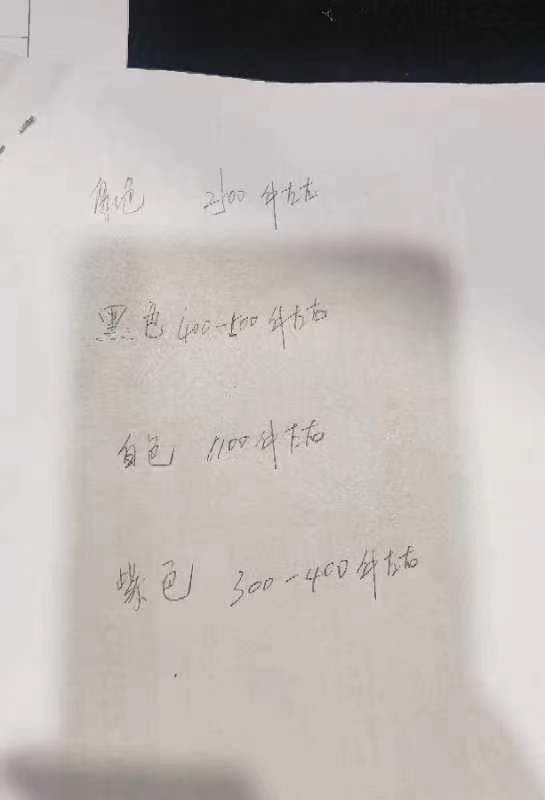 色 2500件左右
黑色 400-500件左右
白色 1100件左右
紫色 300-400件左右